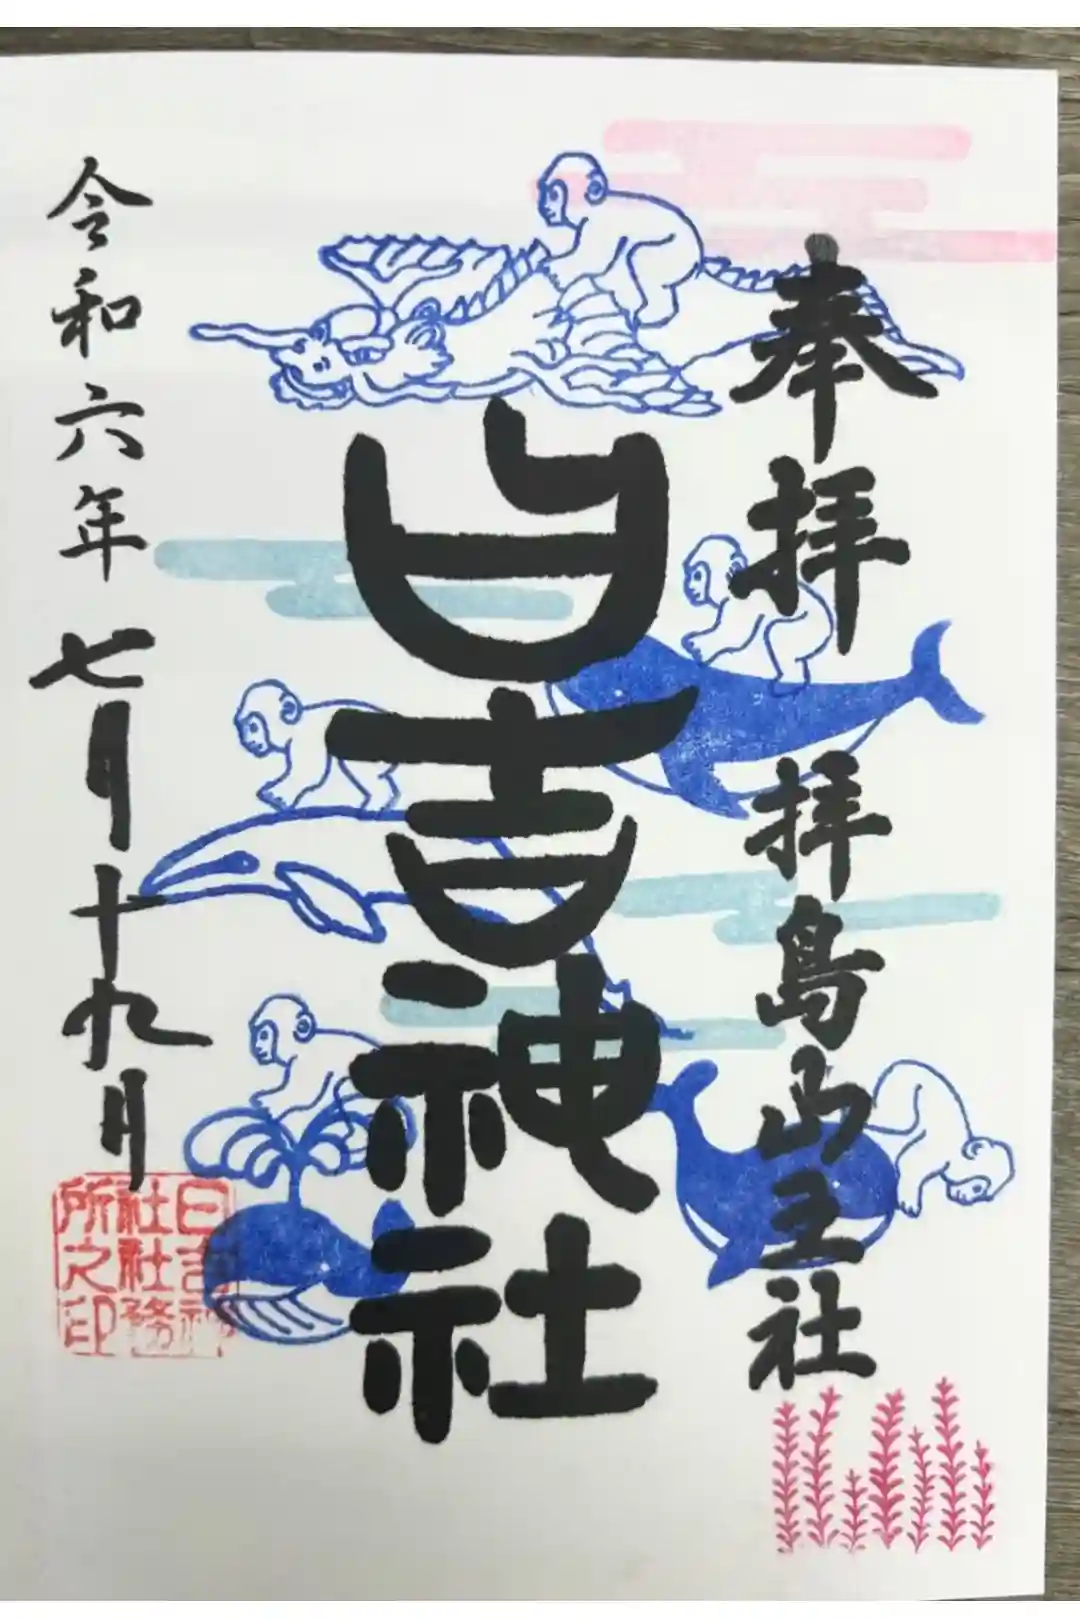 奉拝 拝島山王社
日吉神社
令和六年七月十九月
日吉神
社社務
所之印